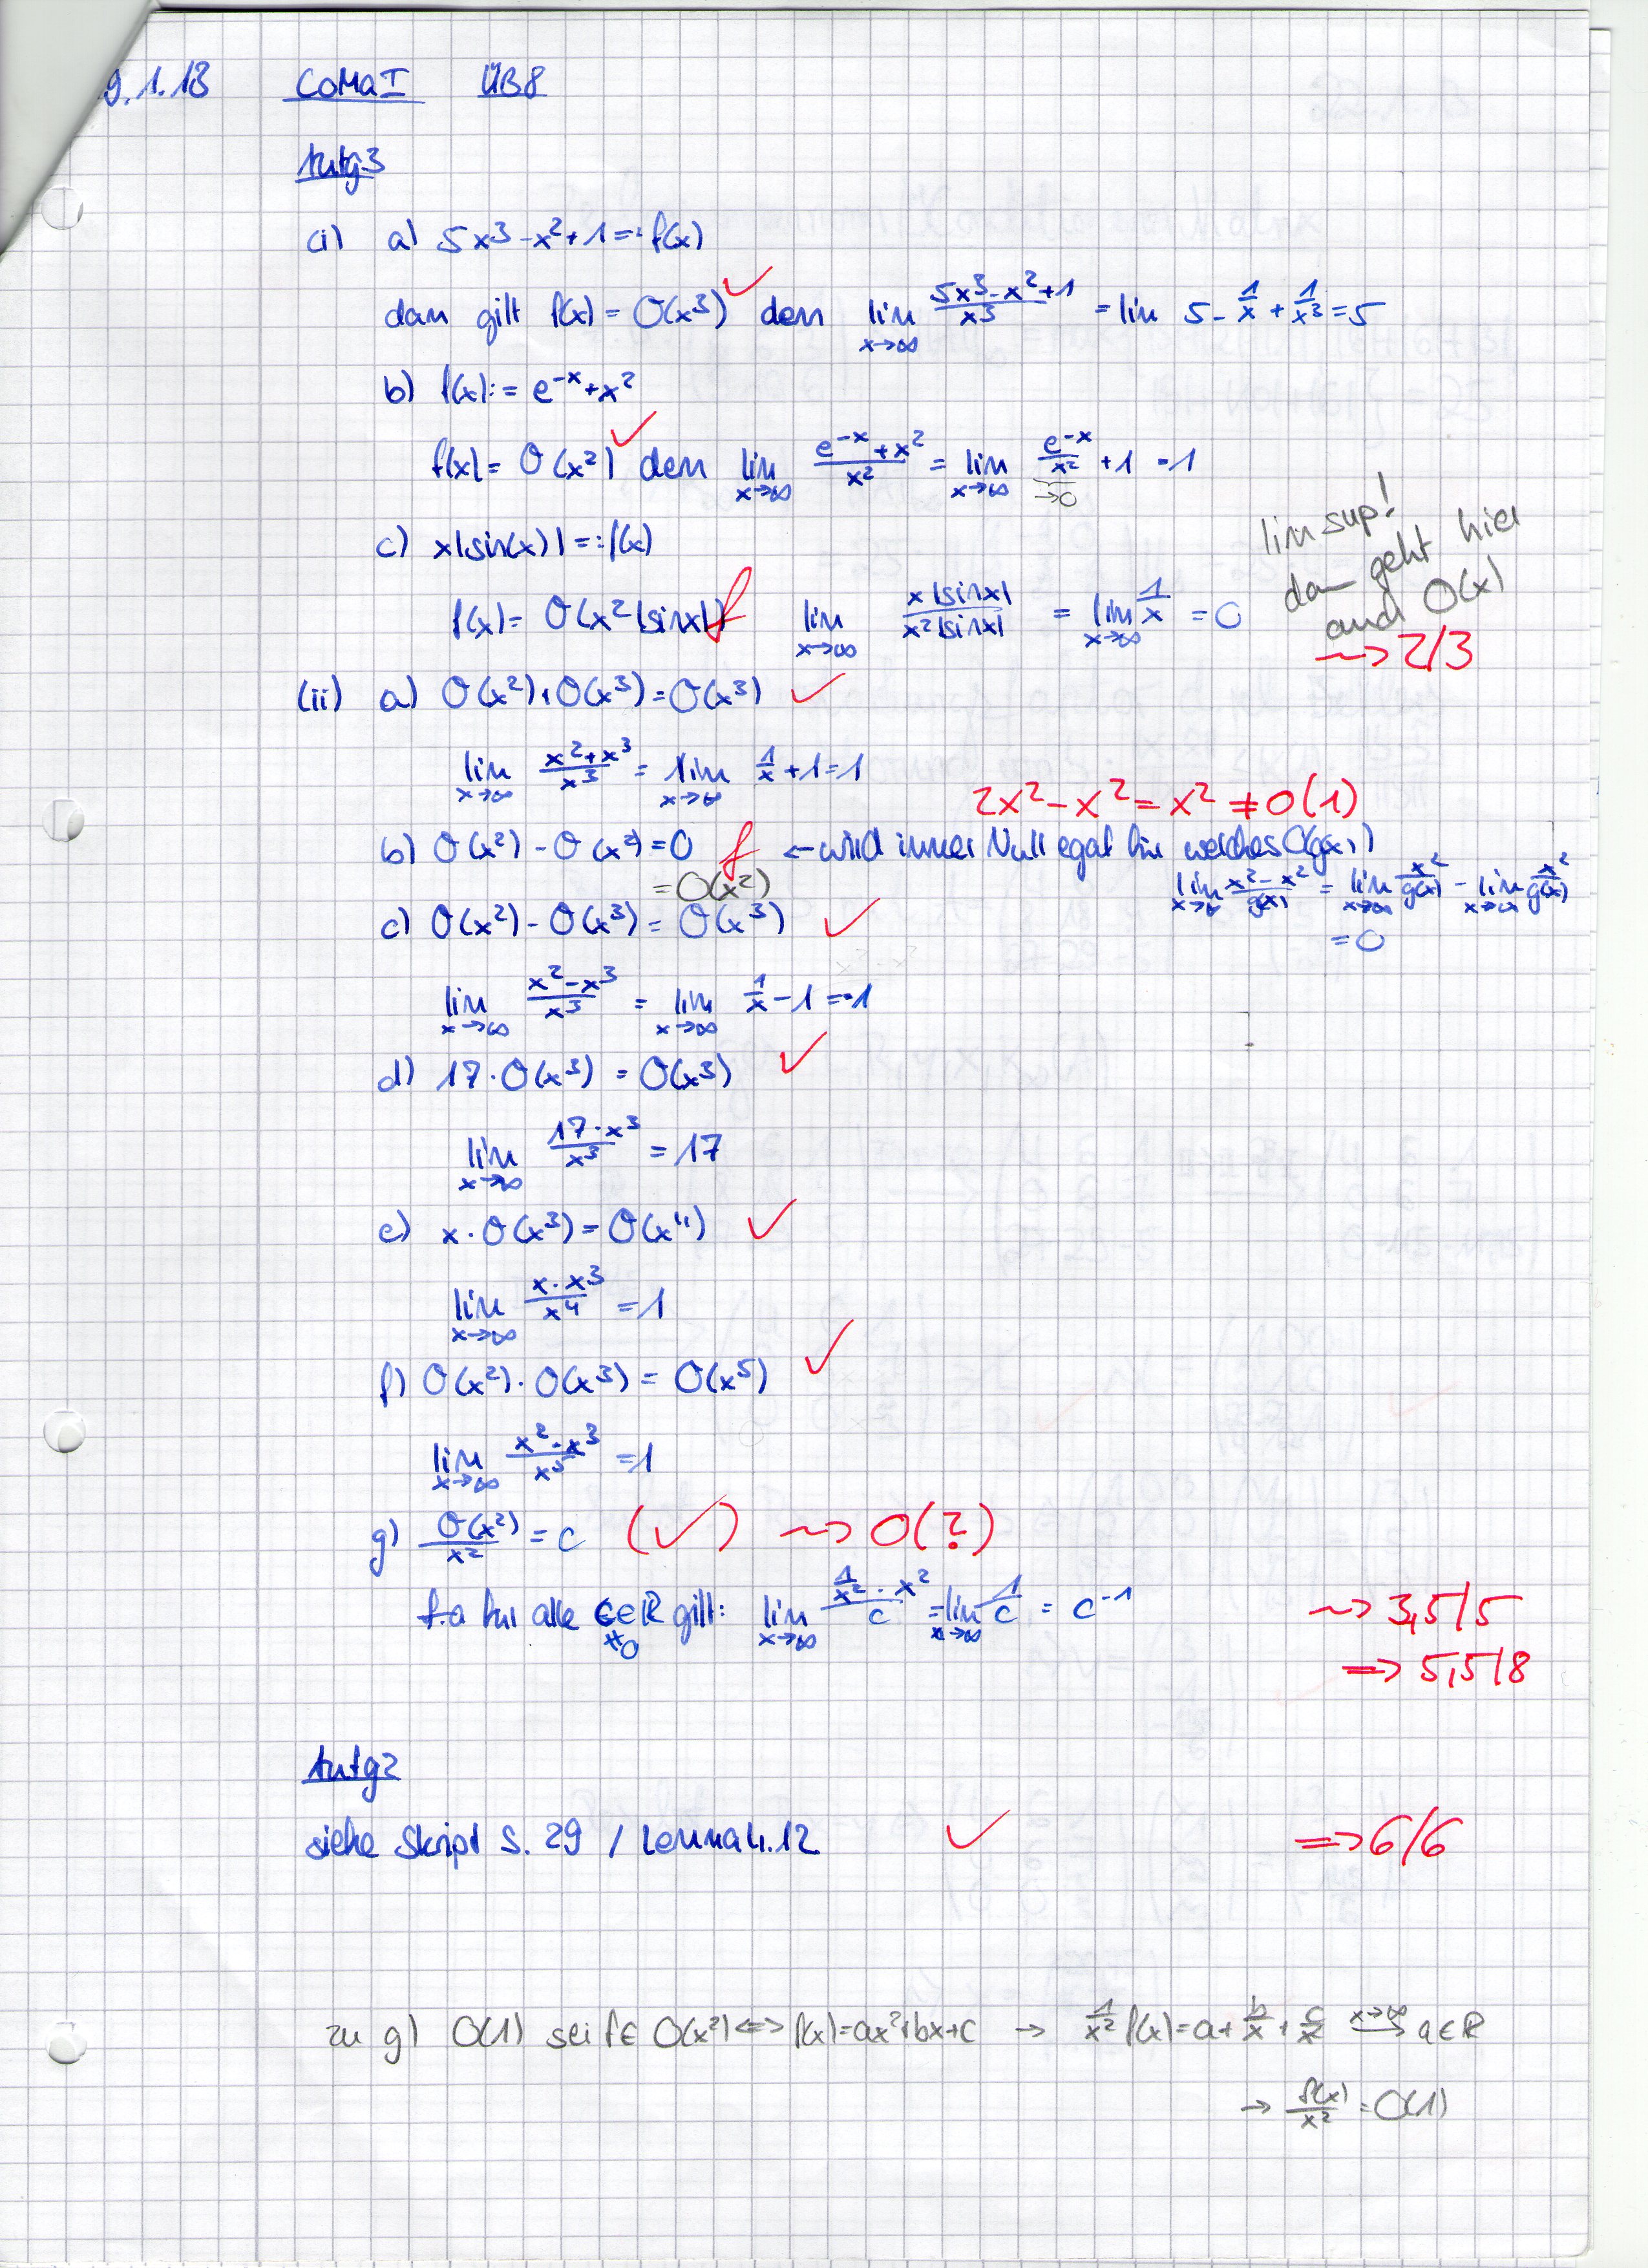 9.1.13 CoMa I ÜB8
Aufg3
(i) a) 5x³-x²+1=:f(x)
dann gilt f(x) = O(x³) ✓ denn lim x→∞ (5x³-x²+1)/x³ = lim 5 - 1/x + 1/x³ = 5
b) f(x):= e^-x + x²
f(x) = O(x²) ✓ denn lim x→∞ (e^-x + x²)/x² = lim x→∞ e^-x/x² + 1 = 1
→0
c) x|sin(x)| =: f(x)
lim sup!
dann geht hier
auch O(x)
f(x) = O(x²|sin x|) f lim x→∞ x|sin x|/x²|sin x| = lim x→∞ 1/x = 0
~> 2/3
(ii) a) O(x²)+O(x³)=O(x³) ✓
lim x→∞ (x²+x³)/x³ = lim x→∞ 1/x + 1 = 1
2x² - x² = x² ≠ O(1)
b) O(x²) - O(x²) = 0 f ← wird immer Null egal für welches O(g(x))
= O(x²)
lim x→∞ (x²-x²)/g(x) = lim x→∞ x²/g(x) - lim x→∞ x²/g(x)
= 0
c) O(x²) - O(x³) = O(x³) ✓
lim x→∞ (x²-x³)/x³ = lim x→∞ 1/x - 1 = -1
d) 17·O(x³) = O(x³) ✓
lim x→∞ 17·x³/x³ = 17
e) x·O(x³) = O(x⁴) ✓
lim x→∞ x·x³/x⁴ = 1
f) O(x²)·O(x³) = O(x⁵) ✓
lim x→∞ x²·x³/x⁵ = 1
g) O(x²)/x² = c (✓) ~> O(?)
f.a für alle c∈ℝ gilt: lim x→∞ (1/x²·x²)/c = lim x→∞ 1/c = c⁻¹
≠0
~> 3,5/5
=> 5,5/8
Aufg2
siehe Skript S. 29 / Lemma 4.12 ✓ => 6/6
zu g) O(1) sei f∈ O(x²) <=> f(x)=ax²+bx+c → 1/x² f(x) = a + b/x + c/x² x→∞ → a∈ℝ
→ f(x)/x² = O(1)